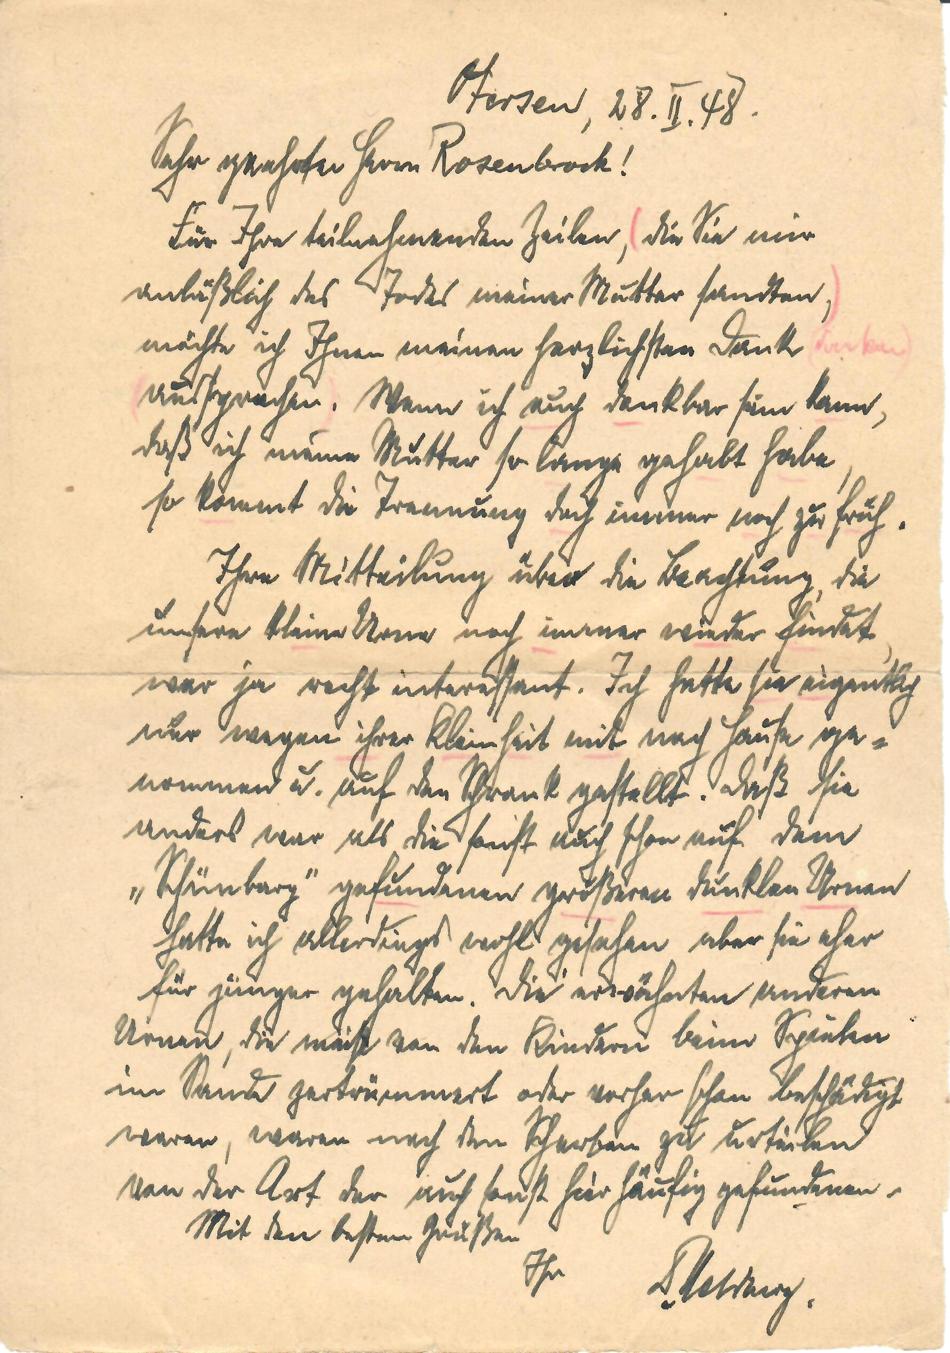 28. II. 48.
Sehr geehrter Herr Rosenbrock!
Für Ihre teilnehmenden Zeilen, (die Sie mir
anläßlich des Todes meiner Mutter sandten,)
möchte ich Ihnen meinen herzlichsten Dank
(aussprechen). Wenn ich auch dankbar sein kann,
daß ich meine Mutter so lange gehabt habe,
so kommt die Trennung doch immer noch zu früh.
Ihre Mitteilung über die Beachtung, die
unsere kleine Urne noch immer wieder findet,
war ja recht interessant. Ich hatte sie eigentlich
nur wegen ihrer Kleinheit mit nach Hause ge-
nommen u. auf den Schrank gestellt. Daß sie
anders war als die sonst auch schon auf dem
„Schünbarg" gefundenen größeren dunklen Urnen
hatte ich allerdings wohl gesehen aber sie eher
für jünger gehalten. Die erwähnten anderen
Urnen, die meist von den Kindern beim Spielen
im Sande zertrümmert oder vorher schon beschädigt
waren, waren nach den Scherben zu urteilen
von der Art der auch sonst hier häufig gefundenen.
Mit den besten Grüßen
Ihr